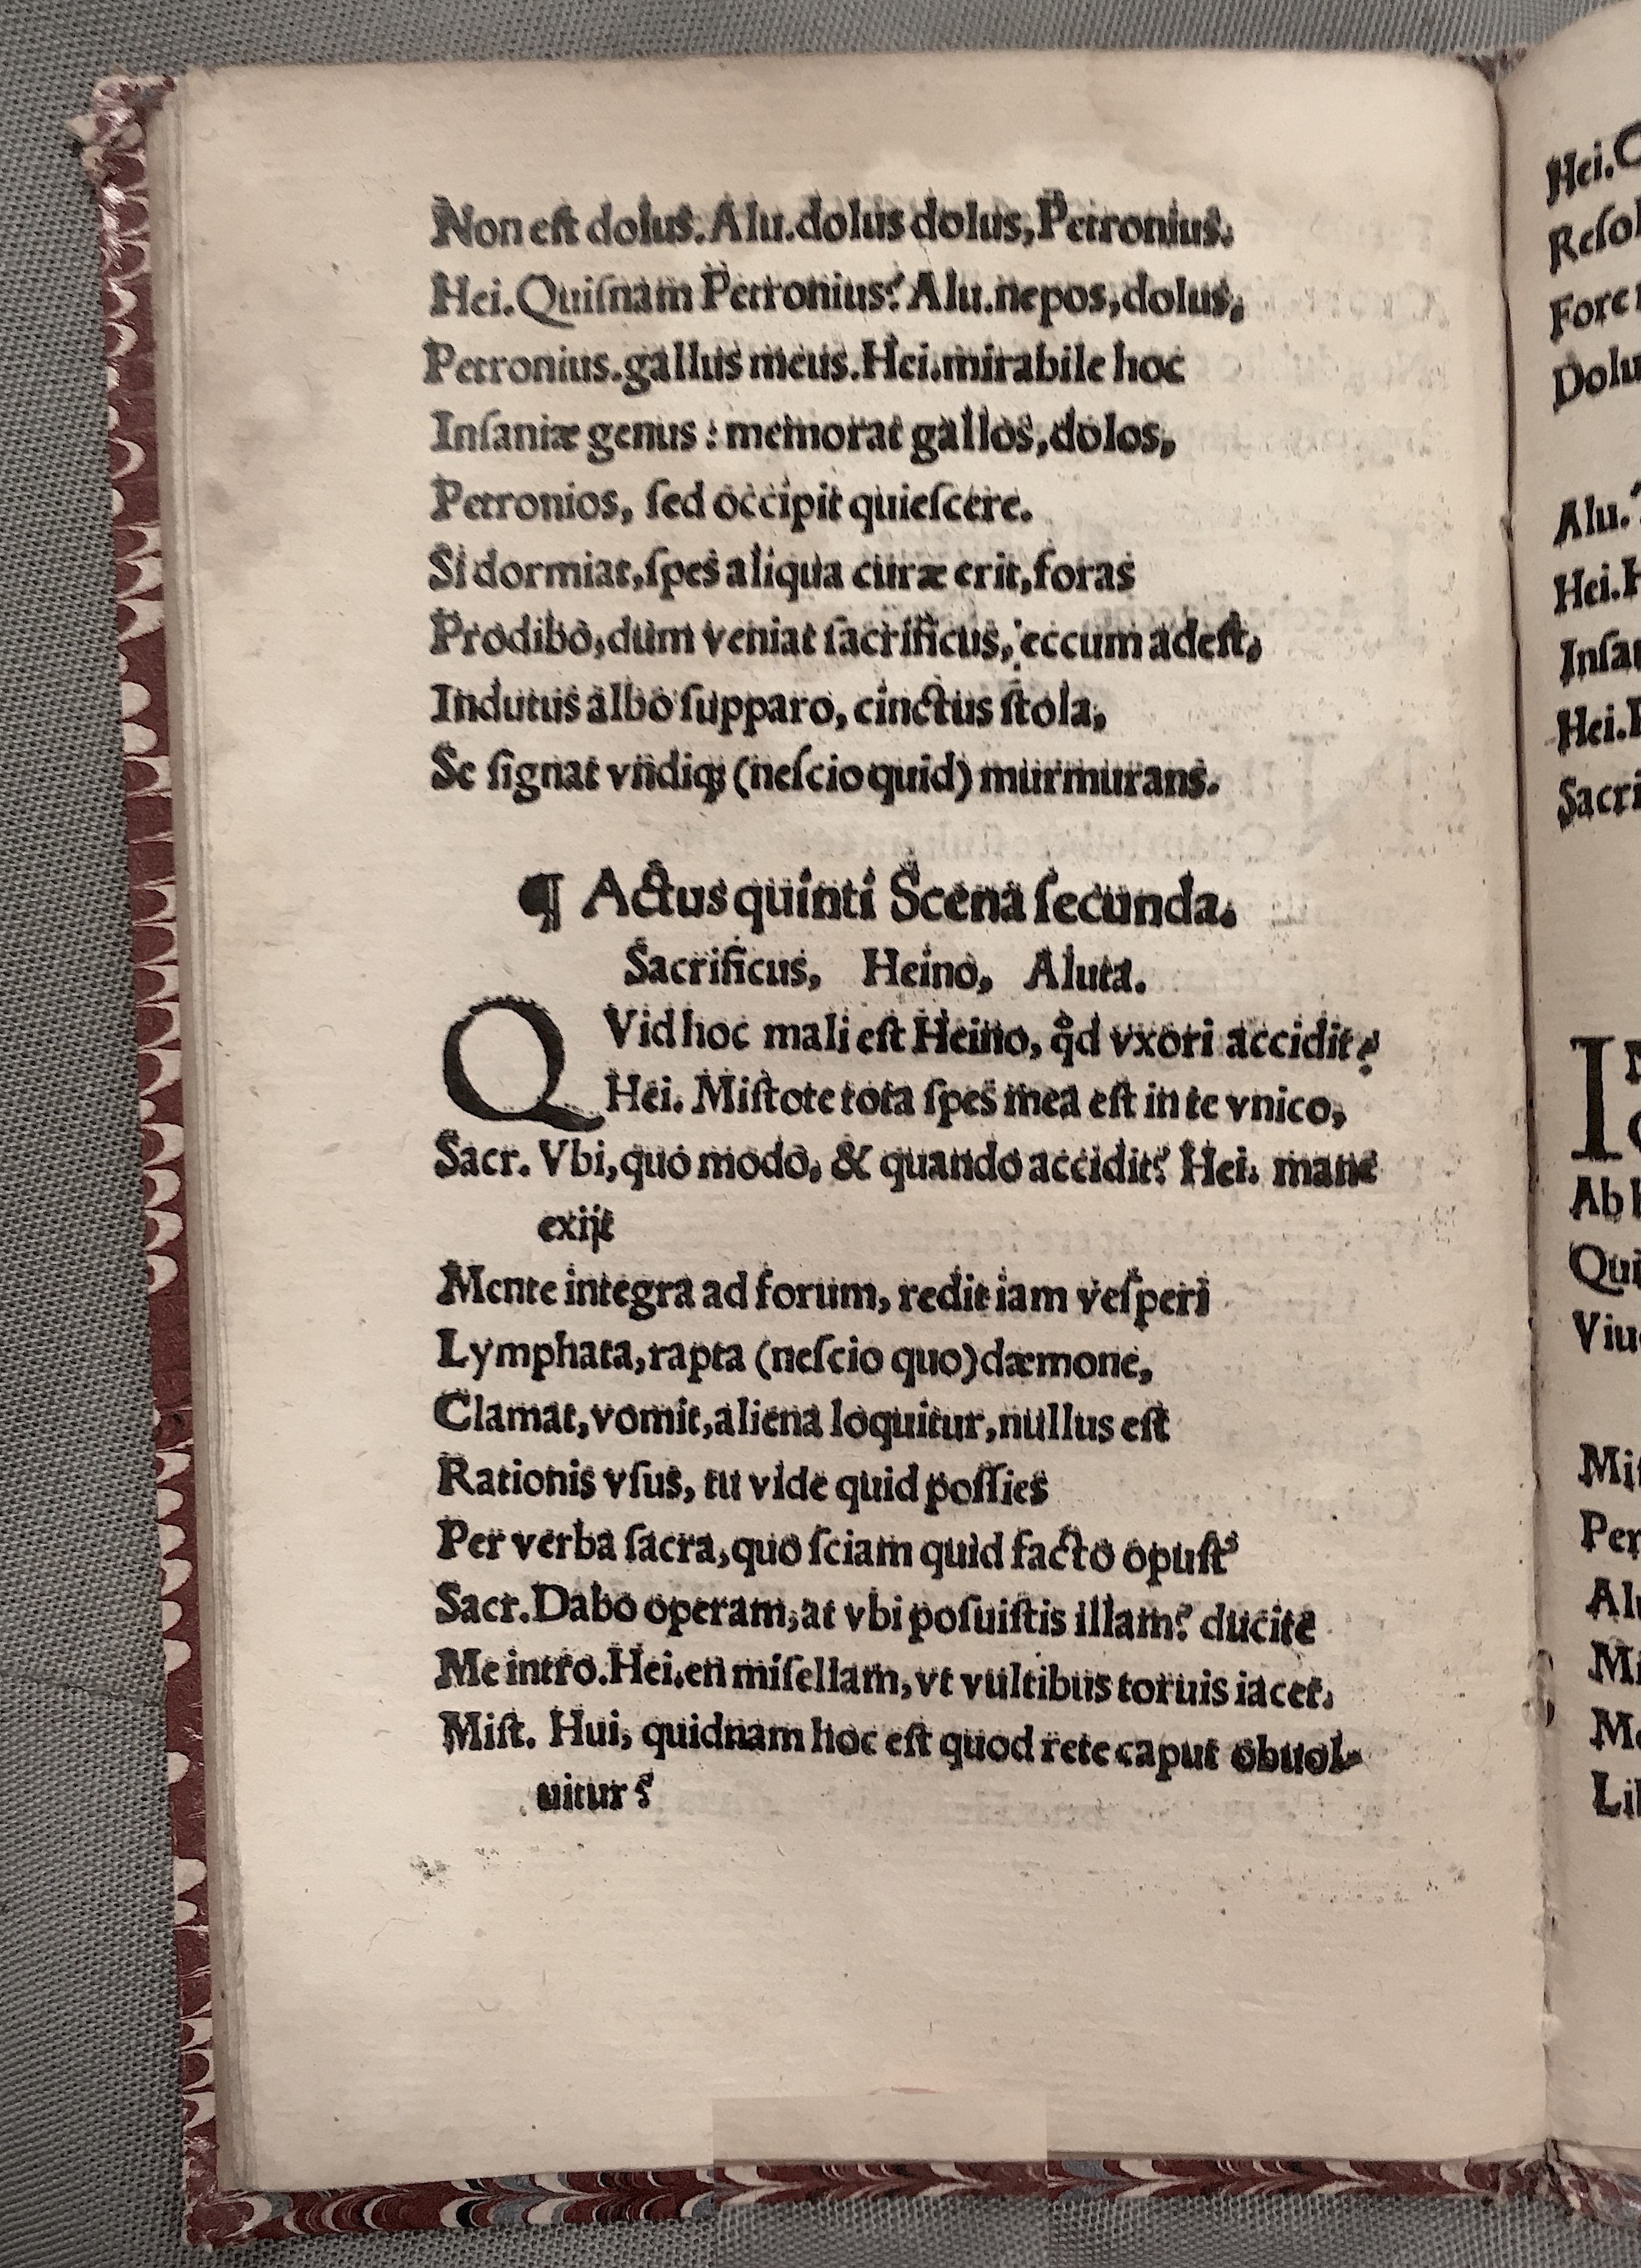 Non est dolus. Alu. dolus dolus, Petronius.
Hei. Quisnam Petronius? Alu. nepos, dolus,
Petronius. gallus meus. Hei. mirabile hoc
Insaniæ genus : memorat gallos, dolos,
Petronios, sed occipit quiescere.
Si dormiat, spes aliqua curæ erit, foras
Prodibo, dum veniat sacrificus, eccum adest,
Indutus albo supparo, cinctus stola,
Se signat vndiq; (nescio quid) murmurans.
¶ Actus quinti Scena secunda.
Sacrificus, Heino, Aluta.
QVid hoc mali est Heino, qd vxori accidit?
Hei. Mistote tota spes mea est in te vnico,
Sacr. Vbi, quo modo, & quando accidit? Hei. mane
exijt
Mente integra ad forum, redit iam vesperi
Lymphata, rapta (nescio quo) dæmone,
Clamat, vomit, aliena loquitur, nullus est
Rationis vsus, tu vide quid possies
Per verba sacra, quo sciam quid facto opust'
Sacr. Dabo operam, at vbi posuistis illam? ducite
Me intro. Hei. en misellam, vt vultibus toruis iacet.
Mist. Hui, quidnam hoc est quod rete caput obuol-
uitur?
Hei.
Alu.
Hei.
Hei.
Ab